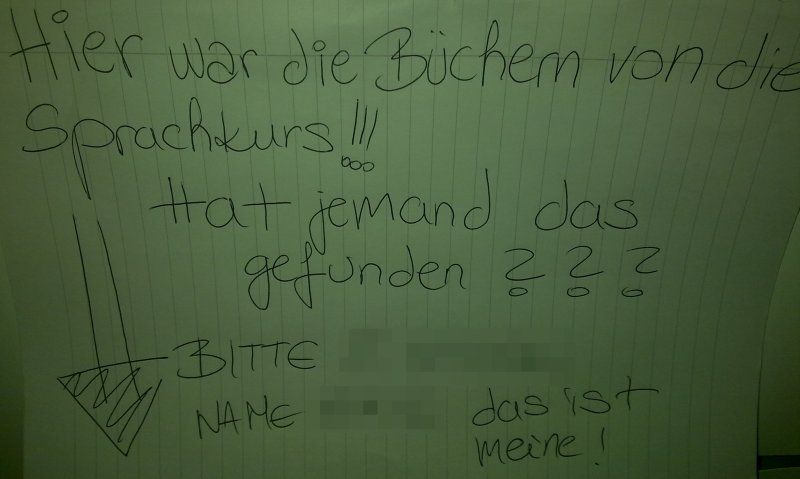 Hier war die Büchern von die
Sprachkurs!!!
Hat jemand das
gefunden ???
BITTE
NAME
das ist
meine!